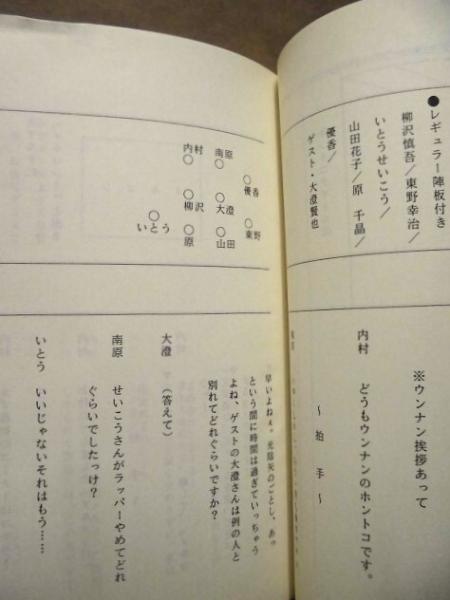 ●レギュラー陣板付き
柳沢慎吾/東野幸治/
いとうせいこう/
山田花子/原 千晶/
優香/
ゲスト・大澄賢也
※ウンナン挨拶あって
内村 どうもウンナンのホントコです。
~拍手~
内村
南原
優香
柳沢
大澄
東野
いとう
原
山田
早いよねぇ。光陰矢のごとし、あっ
という間に時間は過ぎていっちゃう
よね、ゲストの大澄さんは例の人と
別れてどれぐらいですか?
大澄 (答えて)
南原 せいこうさんがラッパーやめてどれ
ぐらいでしたっけ?
いとう いいじゃないそれはもう……